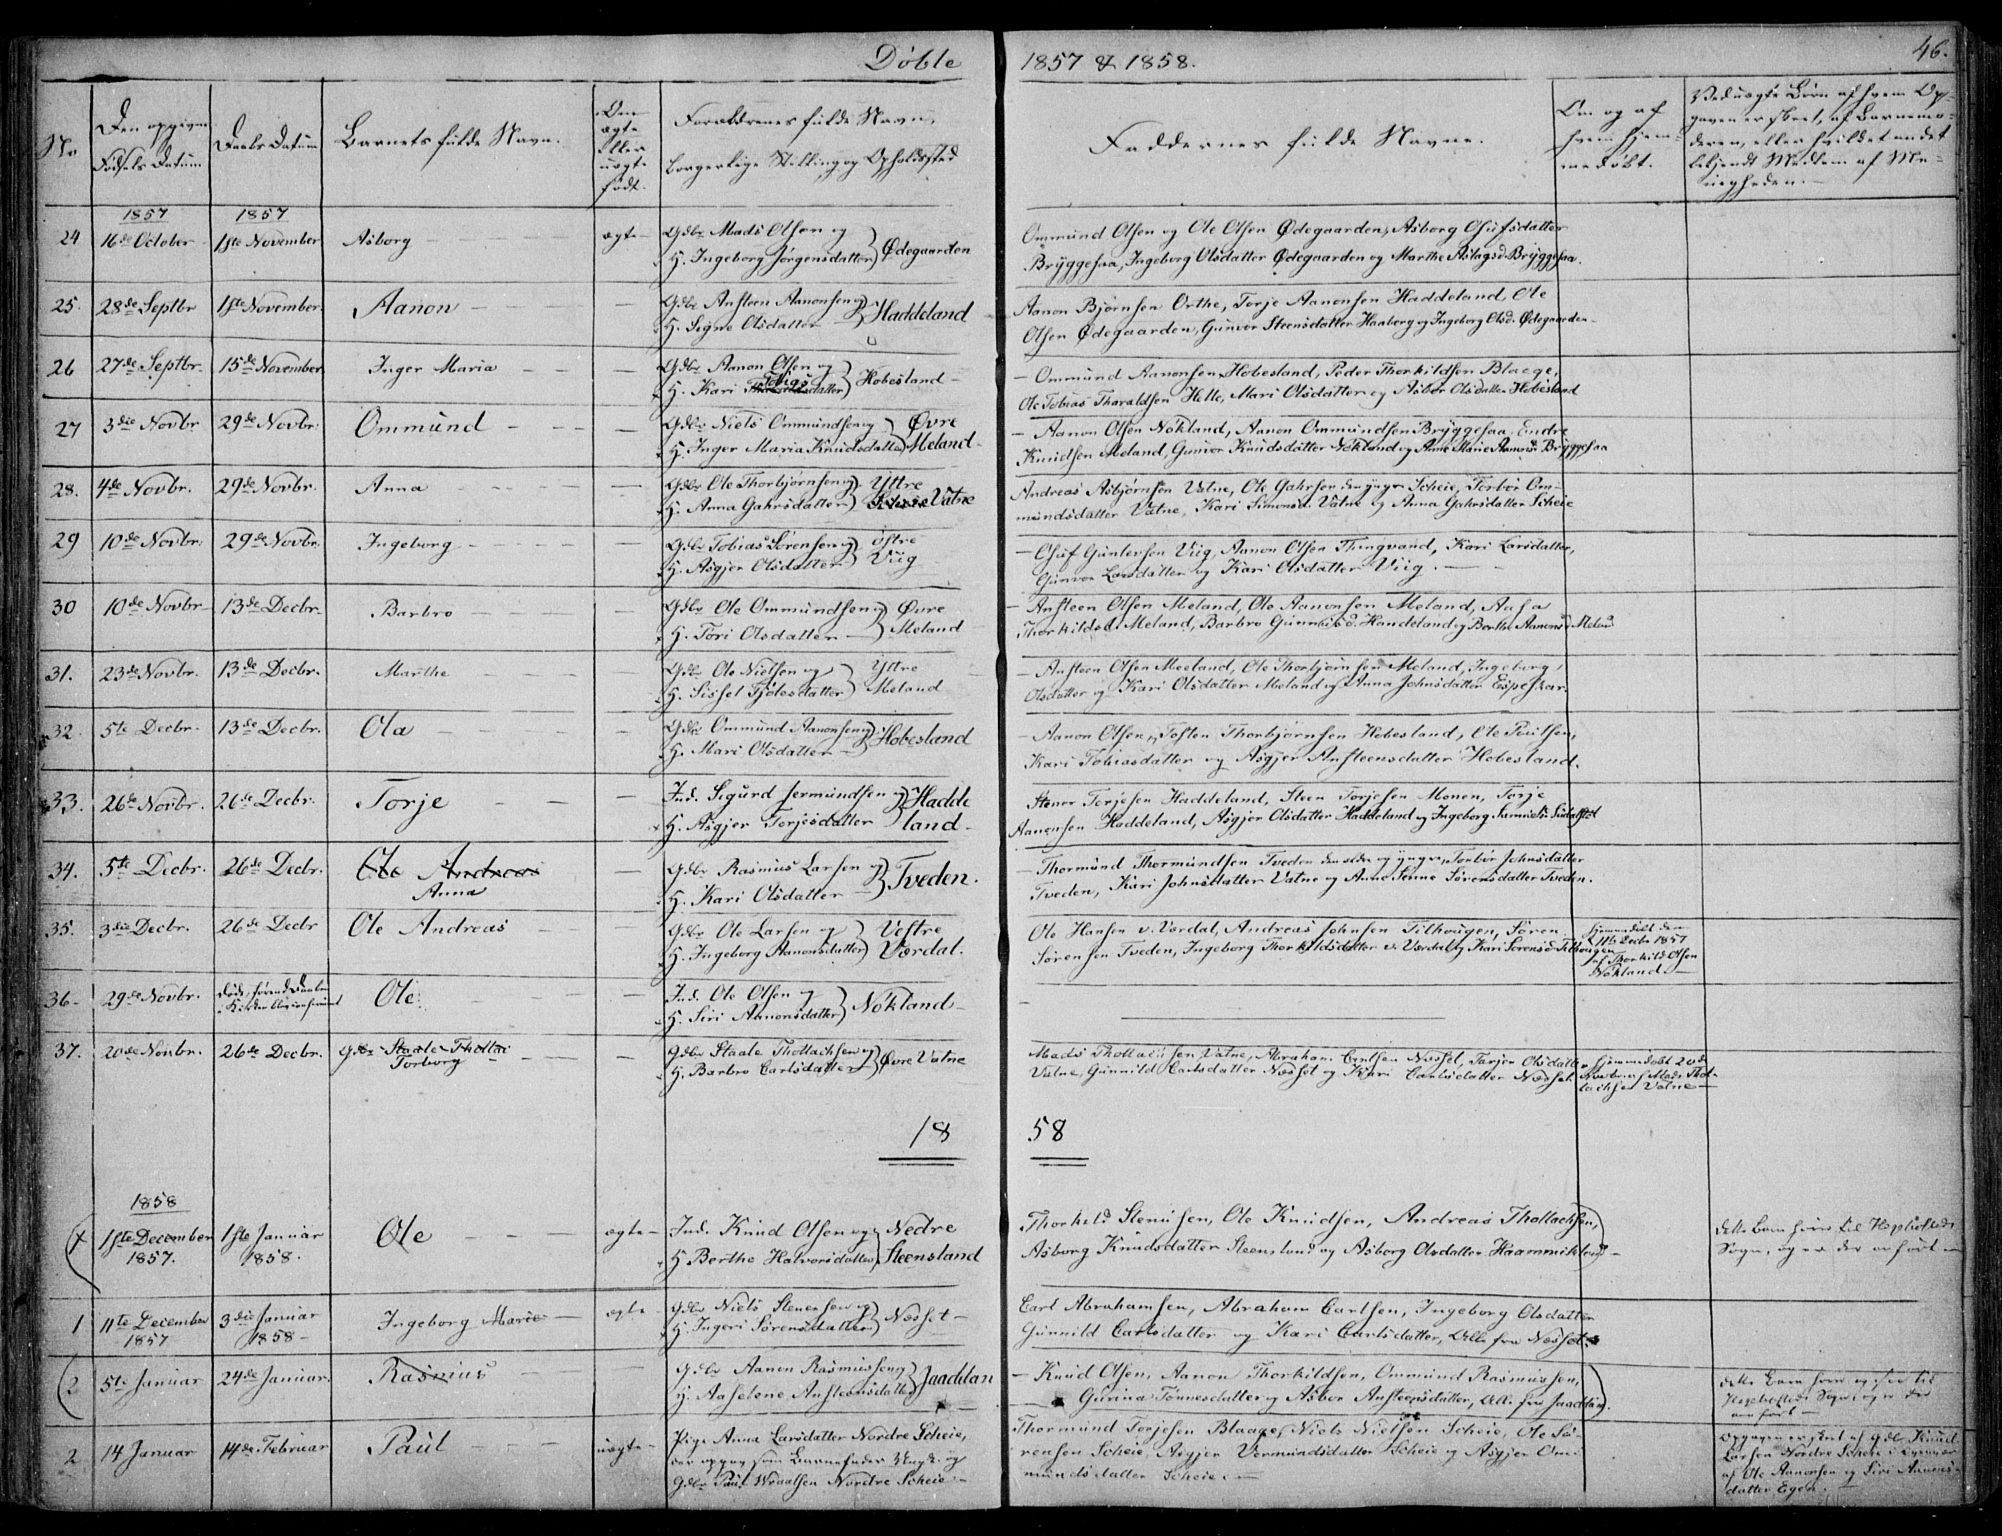 Døbte 1857 & 1858. 46.
No
Den opgivne Fødsels Datum
Daabs Datum
Barnets fulde Navn.
Om ægte eller uægte født.
Forældrenes fulde Navn, borgerlige Stilling og Opholdssted
Faddernes fulde Navne.
Om og af hvem hjemmedøbt.
Ved uægte Børn af hvem Opgaven er skeet, af Barnemoderen, eller hvilket andet bekjendt Medlem af Menigheden.
1857 1857
24 16de October 1ste November Asborg ægte Gdbr Mads Olsen og
H. Ingeborg Jørgensdatter Ødegaarden
Ommund Olsen og Ole Olsen Ødegaarden, Asborg Osufsdatter
Bryggesaa, Ingeborg Olsdatter Ødegaarden og Marthe Aslagsd. Bryggesaa.
25. 28de Septbr 1ste November. Aanon Gdbr Ansteen Aanonsen og
H. Segne Olsdatter Haddeland
Aanon Bjørnsen Orthe, Torje Aanonsen Haddeland, Ole
Olsen Ødegaarden, Gunvor Steensdatter Haaberg og Ingeborg Olsd. Ødegaarden
26 27de Septbr 15de November Inger Maria Gdbr Aanon Olsen og
H. Kari Tobiasdatter Hobesland
Ommund Aanonsen Hobesland, Peder Thorkildsen Blaege,
Ole Tobias Tharaldsen Helle, Mari Olsdatter og Asbor Olsdatter Hobesland
27 3die Novbr 29de Novbr. Ommund Gdbr Niels Ommundsen og Øvre
H. Inger Maria Knudsdatter Meland
Aanon Olsen Nökland, Aanon Ommundsen Bryggesaa, Endre
Knudsen Meland, Gunvor Knudsdatter Nökland og Anne Marie Aanonsd. Bryggesaa
28. 4de Novbr. 29de Novbr. Anna Gdbr Ole Thorbjørnsen og Yttre
H. Anna Gahrsdatter Vatne
Andreas Asbjørnsen Vatne, Ole Gahrsen den yngre Scheie, Torbor Om-
mundsdatter Vatne, Kari Simonsd. Vatne og Anna Gahrsdatter Scheie
29 10de Novbr. 29de Novbr. Ingeborg Gdbr Tobias Sørensen og Østre
H. Asgjer Olsdatter Viig
Osuf Guntersen Viig, Aanon Olsen Tungvand, Kari Larsdatter,
Gunvor Larsdatter og Kari Olsdatter Viig.
30 10de Novbr 13de Decbr. Barbro Gdbr Ole Ommundsen og Øvre
H. Tori Olsdatter Meland
Ansteen Olsen Meland, Ole Aanonsen Meland, Aasa
Thorkildsd. Meland, Barbro Gunnulsd. Handeland og Berthe Aanonsd. Meland
31. 23de Novbr. 13de Decbr. Marthe Gdbr Ole Nielsen og Yttre
H. Sissel Tjølesdatter Meland
Ansteen Olsen Meeland, Ole Thorbjørnsen Meland, Ingeborg
Olsdatter og Kari Olsdatter Meland og Anna Johnsdatter Espeskar.
32 5te Decbr. 13de Decbr. Ola Gdbr Ommund Aanonsen og
H. Mari Olsdatter Hobesland
Aanon Olsen, Tosten Thorbjørnsen Hobesland, Ole Paulsen,
Kari Tobiasdatter og Asgjer Ansteensdatter Hobesland.
33. 26de Novbr. 26de Decbr. Torje Ind. Sigurd Jermundsen og Hadde
H. Asgjer Torjesdatter land
Stener Torjesen Haddeland, Steen Torjesen Monen, Torje
Aanonsen Haddeland, Asgjer Olsdatter Haddeland og Ingeborg
34. 5te Decbr. 26de Decbr. Ole Andreas Gdbr Rasmus Larsen og
Anna H. Kari Olsdatter Tveden.
Thormund Thormundsen Tveden den ældre og yngre, Torbor Johnsdatter
Tveden, Kari Johnsdatter Vatne og Anne Serine Sörensdatter Tveden.
35. 3die Decbr. 26de Decbr Ole Andreas Gdbr Ole Larsen og Vestre
H. Ingeborg Aanonsdatter Værdal.
Ole Hansen v. Værdal, Andreas Johnsen Tilhougen, Sören
Sørensen Tveden, Ingeborg Thorkildsdatter v. Værdal og Kari Sørensd. Tilhougen
Hjemmedøbt den
11te Decbr 1857
af Thorkild Olsen
Nökland
36. 29de Novbr. Ole Ind. Ole Olsen og
H. Siri Aanonsdatter Nökland
37. 20de Novbr. 26de Decbr. Gdbr Staale Thollai
Torborg
Gdbr Staale Thollachsen og
H. Barbro Carlsdatter Øvre Vatne
Mads Thollaisen Vatne, Abraham Carlsen Næsset, Tarjer Olsdatter
Vatne, Gunnild Carlsdatter Næsset og Kari Carlsdatter Næsset.
Hjemmedøbt 20de
Novbr af Mads Thol-
lachsen Vatne
18 58
1858
1ste December 1ste Januar Ole ægte Ind. Knud Olsen og Nedre
1857. 1858. H. Berthe Halvorsdatter Steensland
Thorkild Stenersen, Ole Knudsen, Andreas Thollachsen,
Asborg Knudsdatter Steensland og Asborg Olsdatter Haammikland
dette Barn hører til Hægelands
Sogn, og er der anført
1 11te December 3die Januar Ingeborg Marie ægte Gdbr Niels Stenersen og
1857 1858 H. Ingeri Sørensdatter Næsset
Carl Abrahamsen, Abraham Carlsen, Ingeborg Olsdatter
Gunnild Carlsdatter og Kari Carlsdatter, Alle fra Næsset
2 5te Januar 24de Januar. Rasmus Gdbr Aanon Rasmussen og
H. Aaselene Ansteensdatter Jaaddan
Knud Olsen, Aanon Thorkildsen, Ommund Rasmussen,
Gurina Tønnesdatter og Asbor Ansteensdatter, Alle fra Jaaddan.
dette Barn hører
Sogn, og er der
anført
2 14 Januar 14de Februar Paul uægte Pige Anna Larsdatter Nordre Scheie,
der opgav som Barnefader Ungk. og
Gdbr Paul Wraalsen Nordre Scheie
Thormund Torjesen Blaage, Niels Nielsen Scheie, Ole Sø-
rensen Scheie, Asgjer Vermundsdatter Scheie og Asgjer Om-
mundsdatter Scheie.
Opgaven er skeet af Gdbr Knud
Larsen Nordre Scheie
af Ole Aanonsen og Siri Aanons-
datter Egen.